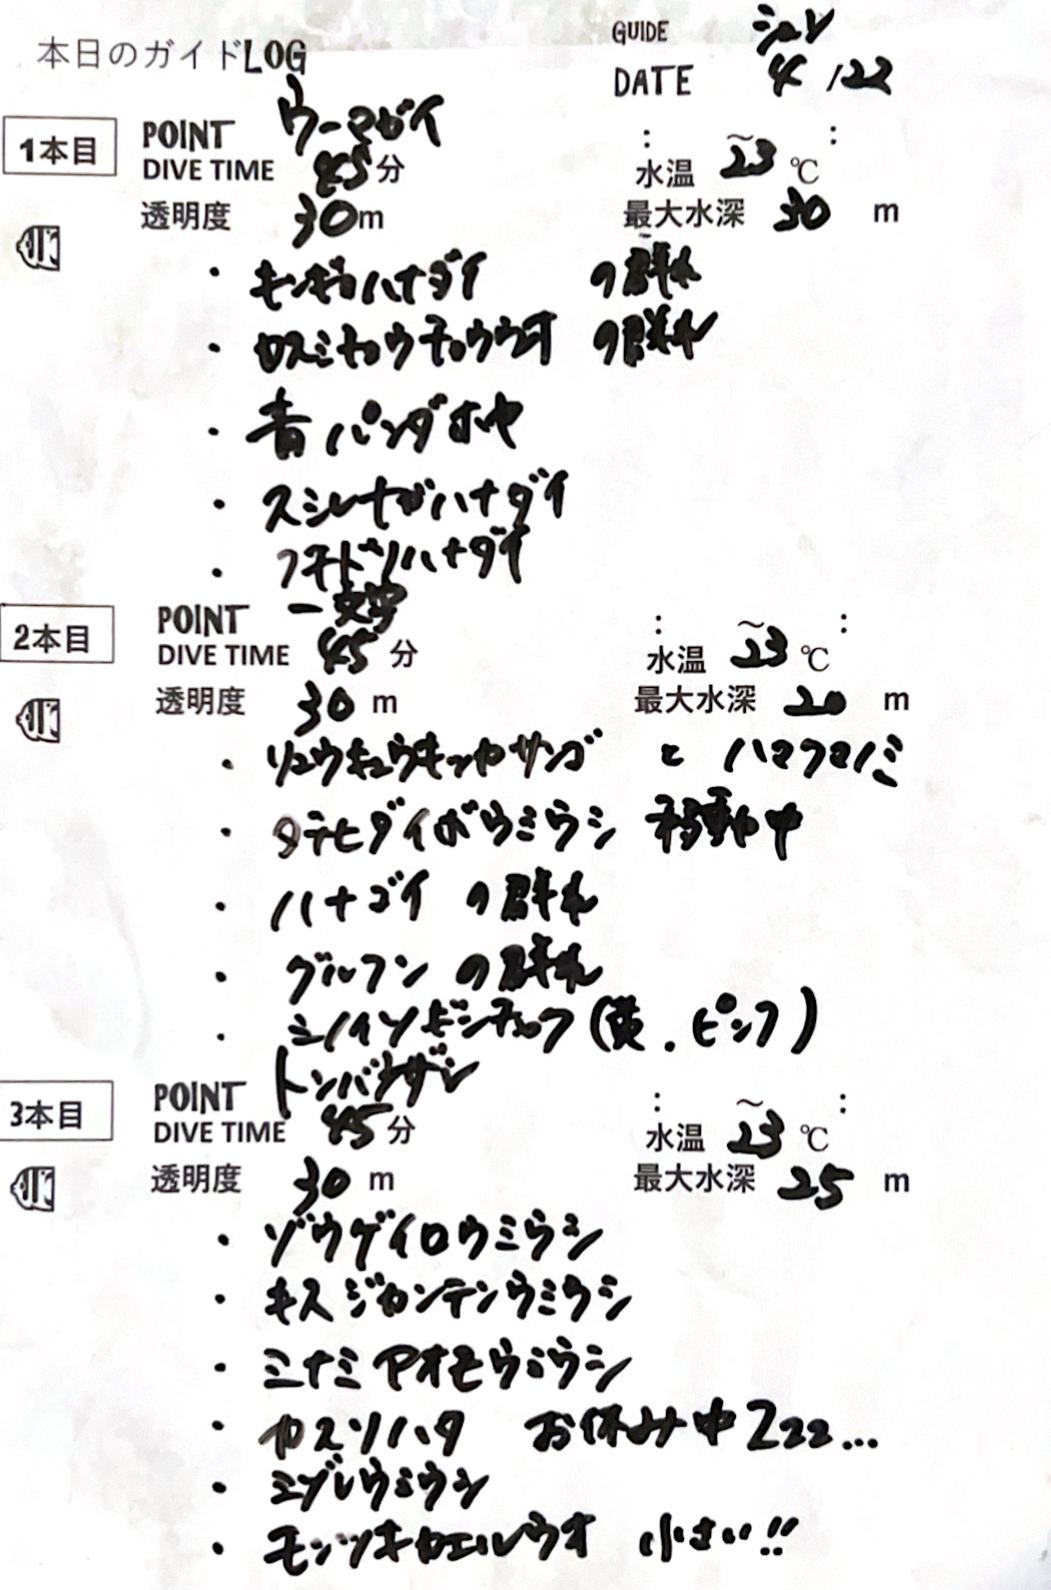 本日のガイドLOG
GUIDE シュレ
DATE 4/22
1本目
POINT ウーマガイ
DIVE TIME 45分
: ~ :
水温 23℃
透明度 30m
最大水深 30 m
・キンギョハナダイ の群れ
・カスミチョウチョウウオ の群れ
・青パンダホヤ
・スジレナガハナダイ
・フチドリハナダイ
2本目
POINT 一文字
DIVE TIME 45 分
: ~ :
水温 23℃
透明度 30 m
最大水深 20 m
・リュウキュウキッカサンゴ と ハマクマノミ
・タテヒダイボウミウシ 移動中
・ハナゴイ の群れ
・グルクン の群れ
・ミノイソギンチャク(黄.ピンク)
3本目
POINT トンバラザシ
DIVE TIME 45 分
: ~ :
水温 23℃
透明度 30 m
最大水深 25 m
・ゾウゲイロウミウシ
・キスジカンテンウミウシ
・ミナミアオモウミウシ
・カスリハタ お休み中Zzz...
・ミゾレウミウシ
・モンツキカエルウオ 小さい!!